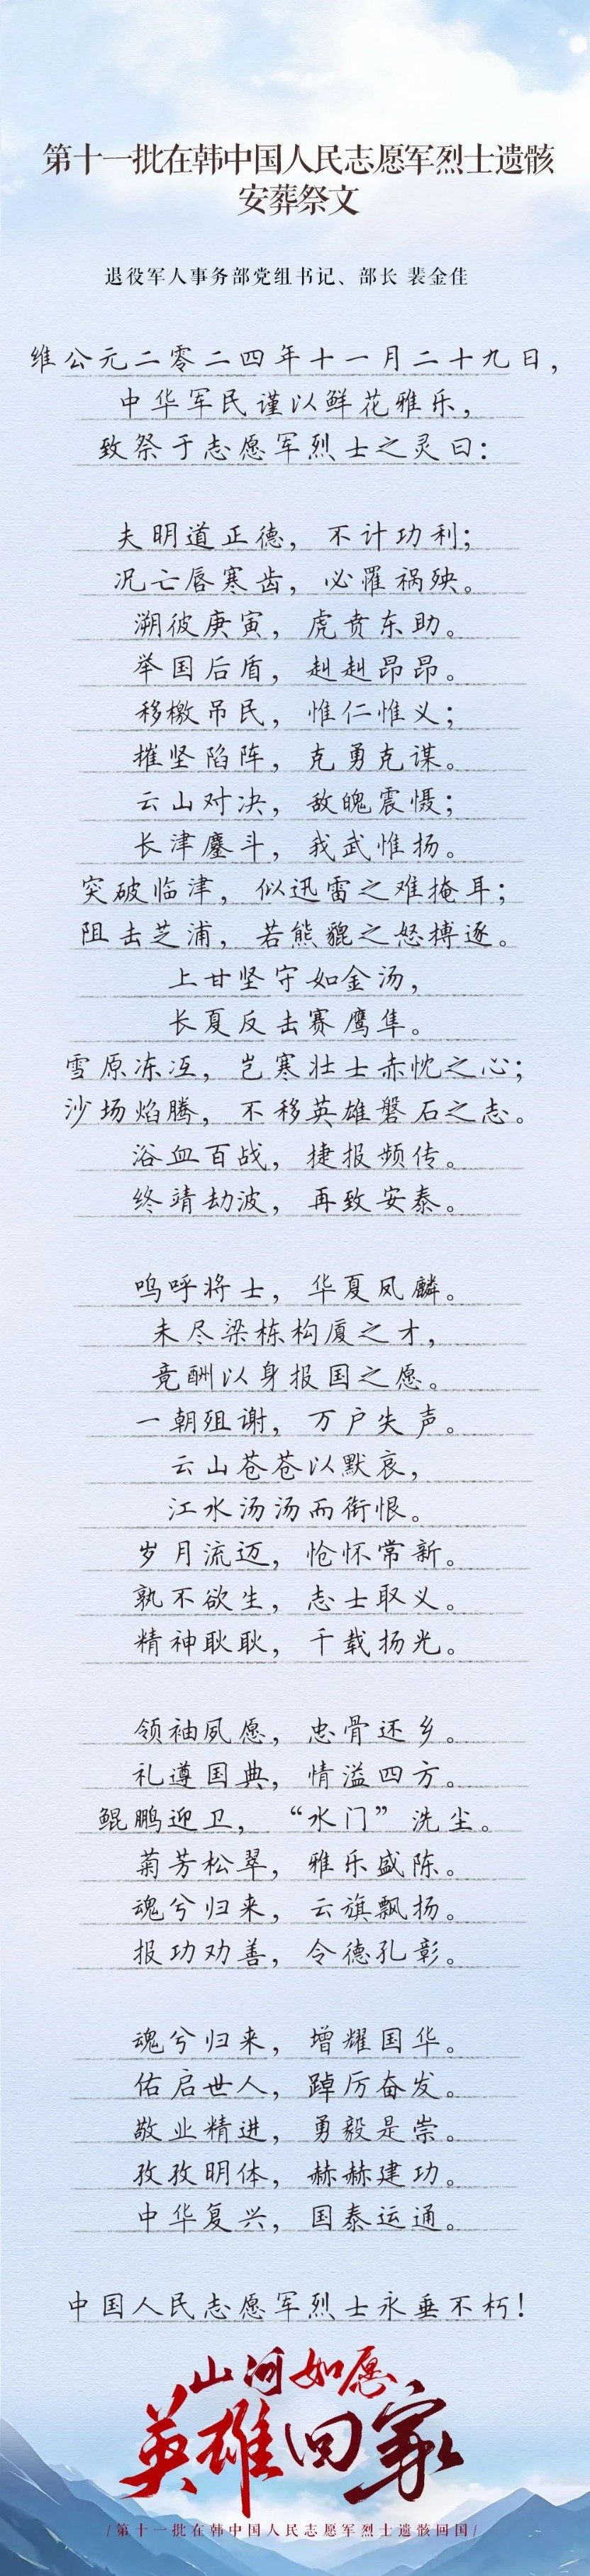 第十一批在韩中国人民志愿军烈士遗骸
安葬祭文
退役军人事务部党组书记、部长 裴金佳
维公元二零二四年十一月二十九日，
中华军民谨以鲜花雅乐，
致祭于志愿军烈士之灵曰：
夫明道正德，不计功利；
况亡唇寒齿，必罹祸殃。
溯彼庚寅，虎贲东助。
举国后盾，赳赳昂昂。
移檄吊民，惟仁惟义；
摧坚陷阵，克勇克谋。
云山对决，敌魄震慑；
长津鏖斗，我武惟扬。
突破临津，似迅雷之难掩耳；
阻击芝浦，若熊貔之怒搏逐。
上甘坚守如金汤，
长夏反击赛鹰隼。
雪原冻冱，岂寒壮士赤忱之心；
沙场焰腾，不移英雄磐石之志。
浴血百战，捷报频传。
终靖劫波，再致安泰。
呜呼将士，华夏凤麟。
未尽梁栋构厦之才，
竟酬以身报国之愿。
一朝殂谢，万户失声。
云山苍苍以默哀，
江水汤汤而衔恨。
岁月流迈，怆怀常新。
孰不欲生，志士取义。
精神耿耿，千载扬光。
领袖夙愿，忠骨还乡。
礼遵国典，情溢四方。
鲲鹏迎卫，“水门”洗尘。
菊芳松翠，雅乐盛陈。
魂兮归来，云旗飘扬。
报功劝善，令德孔彰。
魂兮归来，增耀国华。
佑启世人，踔厉奋发。
敬业精进，勇毅是崇。
孜孜明体，赫赫建功。
中华复兴，国泰运通。
中国人民志愿军烈士永垂不朽！
山河如愿
英雄回家
/第十一批在韩中国人民志愿军烈士遗骸回国/